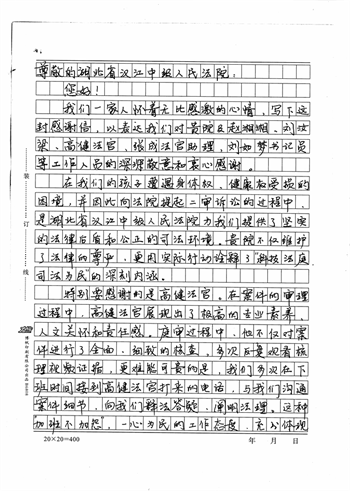 尊敬的湖北省汉江中级人民法院:
您好!
我们一家人怀着无比感激的心情,写下这
封感谢信,以表达我们对贵院及赵湘湘、刘汝
梁、高健法官,张成法官助理,刘如梦书记员
等工作人员的深深敬意和衷心感谢。
在我们的孩子遭遇身体权、健康权受损的
困境,并因此向法院提起二审诉讼的过程中,
是湖北省汉江中级人民法院为我们提供了坚实
的法律后盾和公正的司法环境。贵院不仅维护
了法律的尊严,更用实际行动诠释了"科技法庭
司法为民"的深刻内涵。
特别要感谢的是高健法官。在案件的审理
过程中,高健法官展现出了极高的专业素养、
人文关怀和责任感。庭审过程中,他不仅对案
件进行了全面、细致的核查,多次反复观看梳
理视频证据,更难能可贵的是,我们多次在下
班时间接到高健法官打来的电话,与我们沟通
案件细节,向我们释法答疑,阐明法理。这种
"加班不加怨",一心为民的工作态度,充分体现
20×20=400 年 月 日
装
订
线